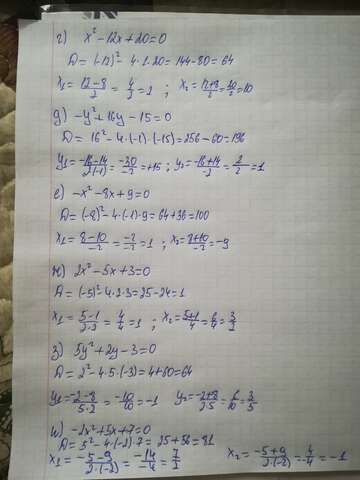 г) x² - 12x + 20 = 0
D = (-12)² - 4·1·20 = 144 - 80 = 64
x₁ = (12-8)/2 = 4/2 = 1 ; x₂ = (12+8)/2 = 20/2 = 10
д) -y² + 16y - 15 = 0
D = 16² - 4·(-1)·(-15) = 256 - 60 = 196
y₁ = (-16-14)/(2·(-1)) = -30/-2 = +15 ; y₂ = (-16+14)/-2 = 2/2 = 1
е) -x² - 8x + 9 = 0
D = (-8)² - 4·(-1)·9 = 64 + 36 = 100
x₁ = (8-10)/-2 = -2/-2 = 1 ; x₂ = (8+10)/-2 = -9
ж) 2x² - 5x + 3 = 0
D = (-5)² - 4·2·3 = 25 - 24 = 1
x₁ = (5-1)/(2·2) = 4/4 = 1 ; x₂ = (5+1)/4 = 6/4 = 3/2
з) 5y² + 2y - 3 = 0
D = 2² - 4·5·(-3) = 4 + 60 = 64
y₁ = (-2-8)/(5·2) = -10/10 = -1 y₂ = (-2+8)/(2·5) = 6/10 = 3/5
и) -2x² + 5x + 7 = 0
D = 5² - 4·(-2)·7 = 25 + 56 = 81
x₁ = (-5-9)/(2·(-2)) = -14/-4 = 7/2 x₂ = (-5+9)/(2·(-2)) = 4/-4 = -1